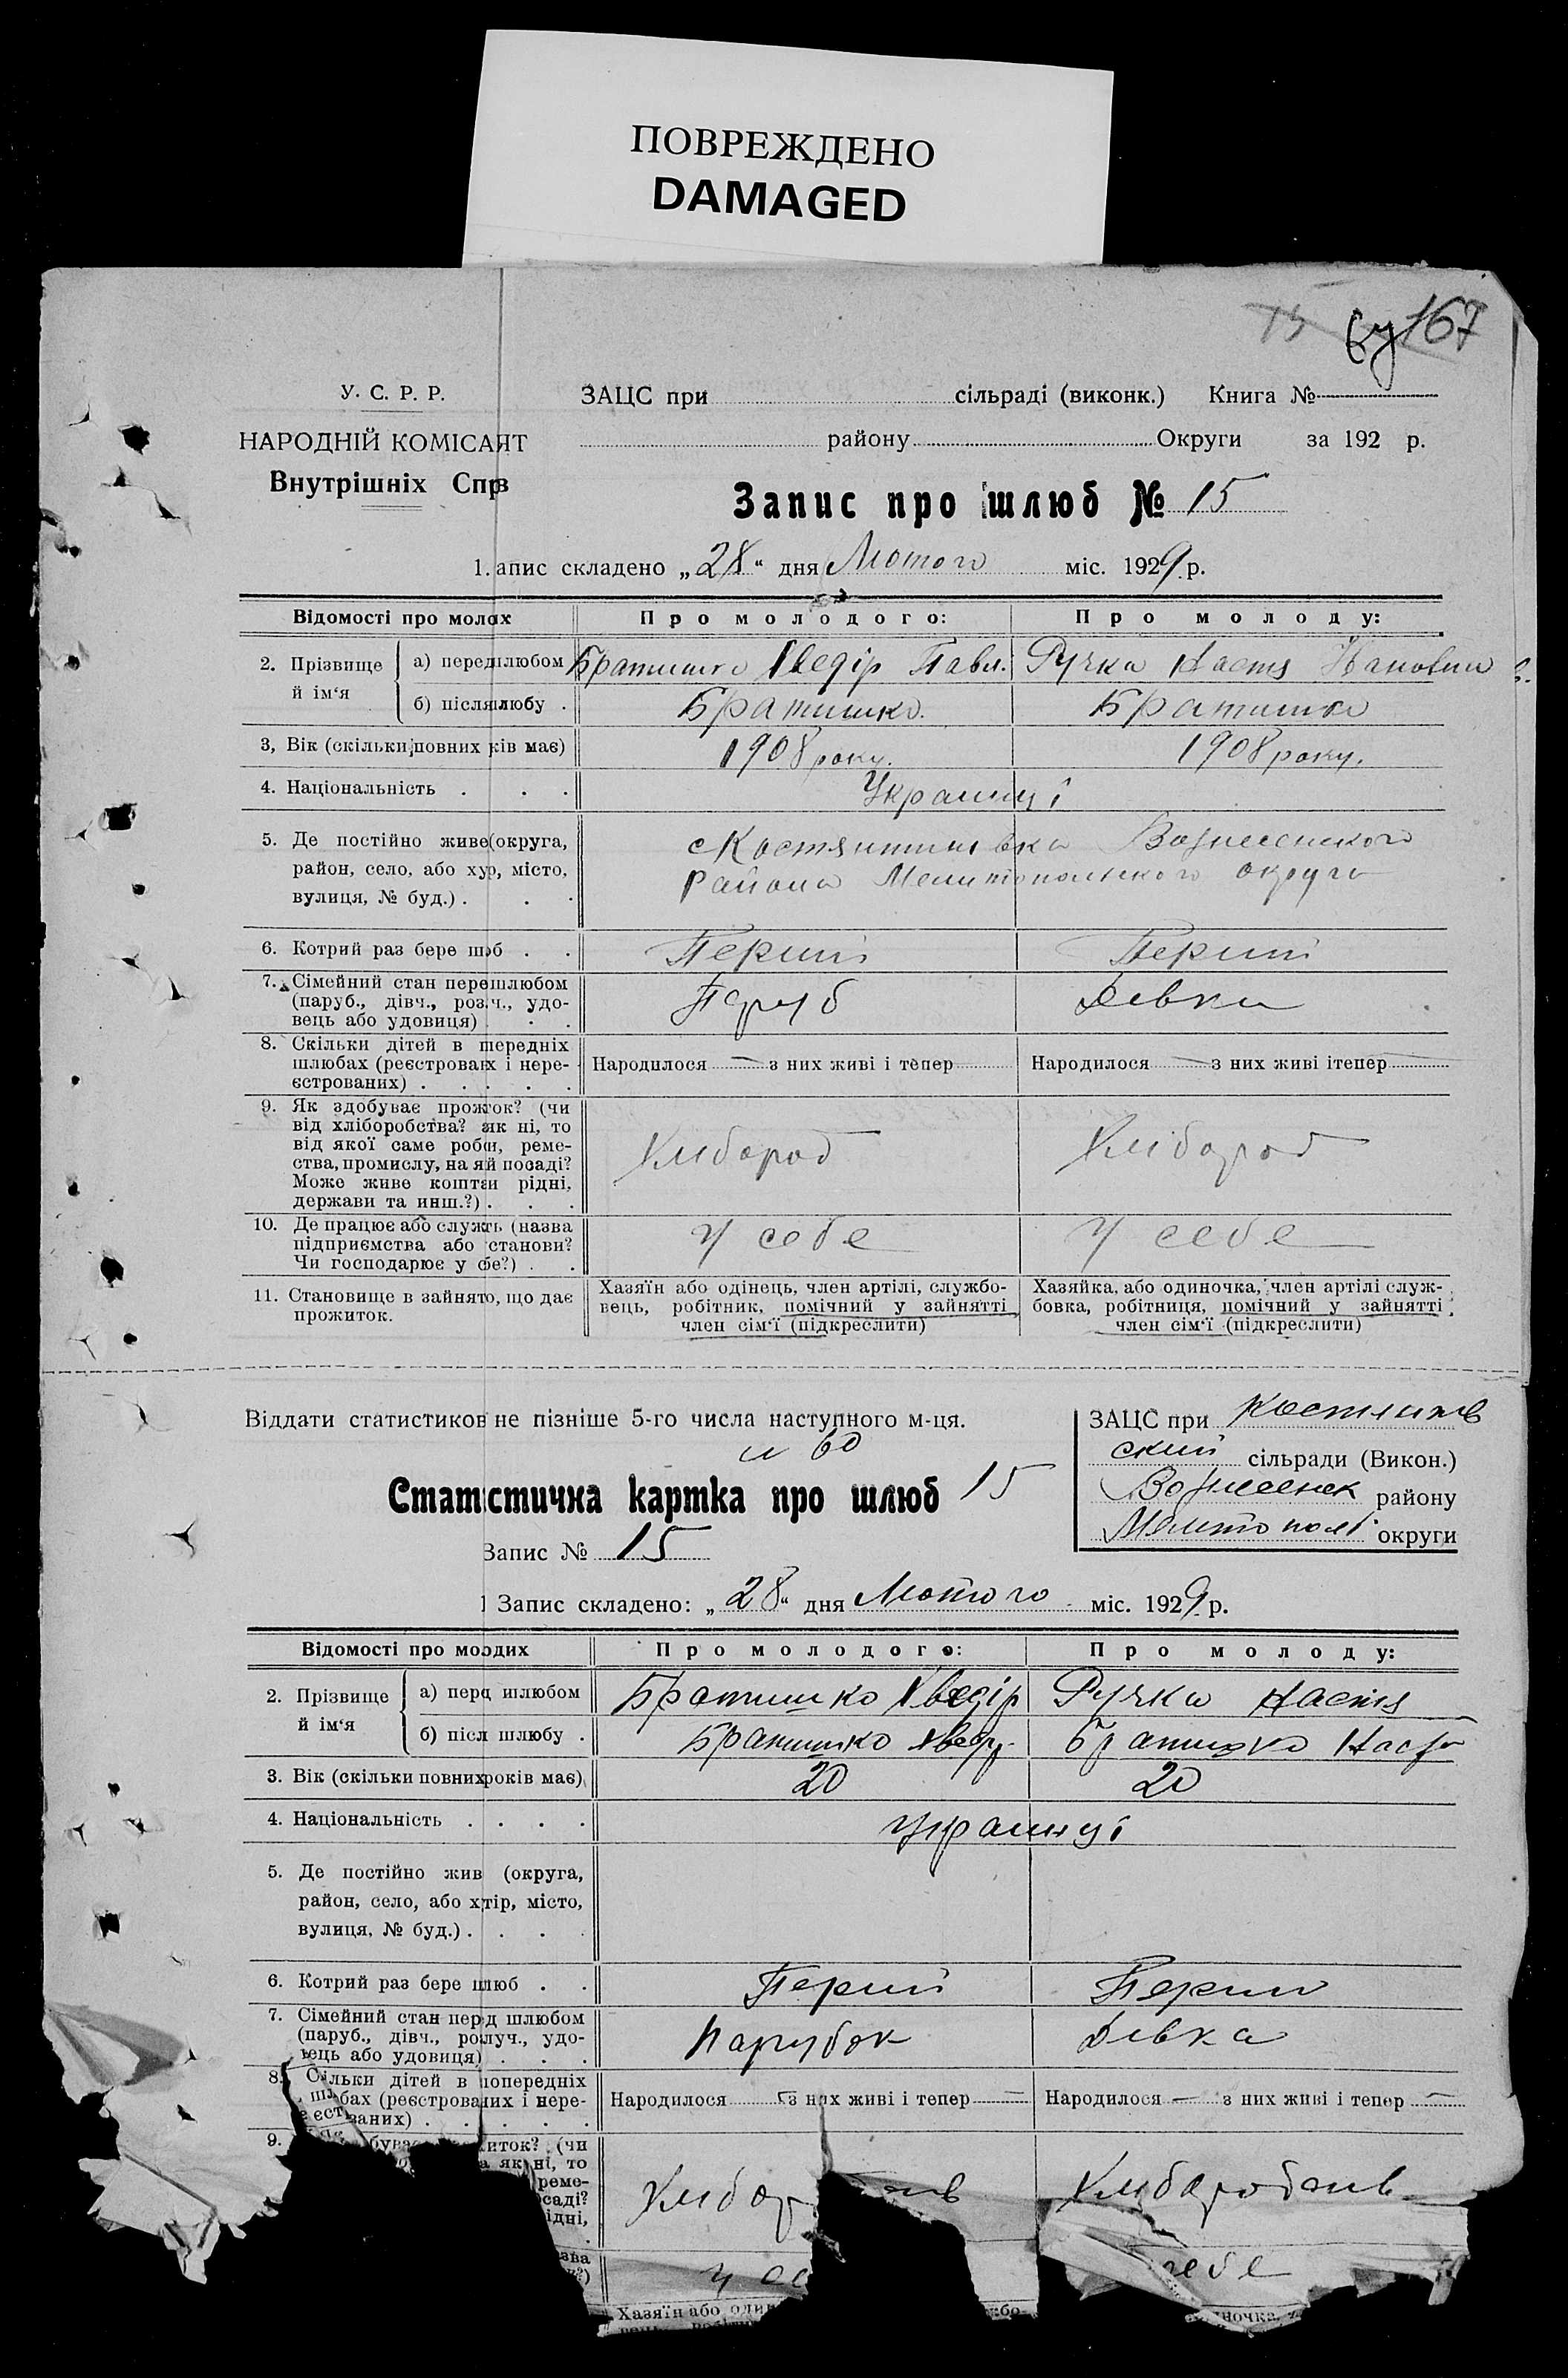 ПОВРЕЖДЕНО
DAMAGED
167
У. С. Р. Р.
НАРОДНІЙ КОМІСАЯТ
Внутрішніх Спрв
ЗАЦС при сільраді (виконк.) Книга №
району Округи за 192 р.
Запис про шлюб № 15
1. апис складено „28“ дня Лютого міс. 1929 р.
Відомості про молох Про молодого: Про молоду:
2. Прізвище й ім‘я а) перед шлюбом Братишко Хведір Павл. Ручка Настя
б) після шлюбу . Братишко. Братишко
3, Вік (скільки повних ків має) 1908 року. 1908 року.
4. Національність . . . Українці
5. Де постійно живе (округа,
район, село, або хур, місто,
вулиця, № буд.) . . .
с Костянтинівка Вознесенского
района Мелитопольского округа
6. Котрий раз бере шлб . . Перший Перший
7. Сімейний стан пере шлюбом
(паруб., дівч., роз.ч., удо-
вець або удовиця) . . .
Паруб Дівка
8. Скільки дітей в передніх
шлюбах (реєстрованх і нере-
єстрованих) . . . . .
Народилося — з них живі і тепер Народилося — з них живі і тепер
9. Як здобуває прожток? (чи
від хліборобства? як ні, то
від якої саме роби, реме-
ства, промислу, на яй посаді?
Може живе коштаи рідні,
держави та инш.?) . . .
Хлібороб Хлібороб
10. Де працює або служть (назва
підприємства або станови?
Чи господарює у сбе?) . .
У себе У себе
11. Становище в зайнято, що дає
прожиток.
Хазяїн або одінець, член артілі, службо-
вець, робітник, помічний у зайнятті
член сім‘ї (підкреслити)
Хазяйка, або одиночка, член артілі служ-
бовка, робітниця, помічний у зайнятті
член сім‘ї (підкреслити)
Віддати статистиков не пізніше 5-го числа наступного м-ця.
60
Статистична картка про шлюб 15
Запис № 15
ЗАЦС при Костянтив
ский сільради (Викон.)
Вознесенск району
Мелітополь округи
1 Запис складено: „28“ дня Лютого міс. 1929 р.
Відомості про моодих Про молодого: Про молоду:
2. Прізвище й ім‘я а) перд шлюбом Братишко Хведір Ручка Настя
б) післ шлюбу . Братишко Хведір Братишко
3. Вік (скільки повних років має) 20 20
4. Національність . . . . Українці
5. Де постійно жив (округа,
район, село, або хтір, місто,
вулиця, № буд.) . . . .
6. Котрий раз бере шлюб . . Перший Перший
7. Сімейний стан перд шлюбом
(паруб., дівч., ролуч., удо-
вець або удовиця) . . .
Парубок Дівка
8. Скільки дітей в попередніх
шлюбах (реєстрованих і нере-
єстрованих) . . . . .
Народилося з них живі і тепер — Народилося — з них живі і тепер —
9. иток? (чи
як ні, то
реме-
саді?
ідні,
Хлібор Хліборобств
У се себе
Хазяїн або один